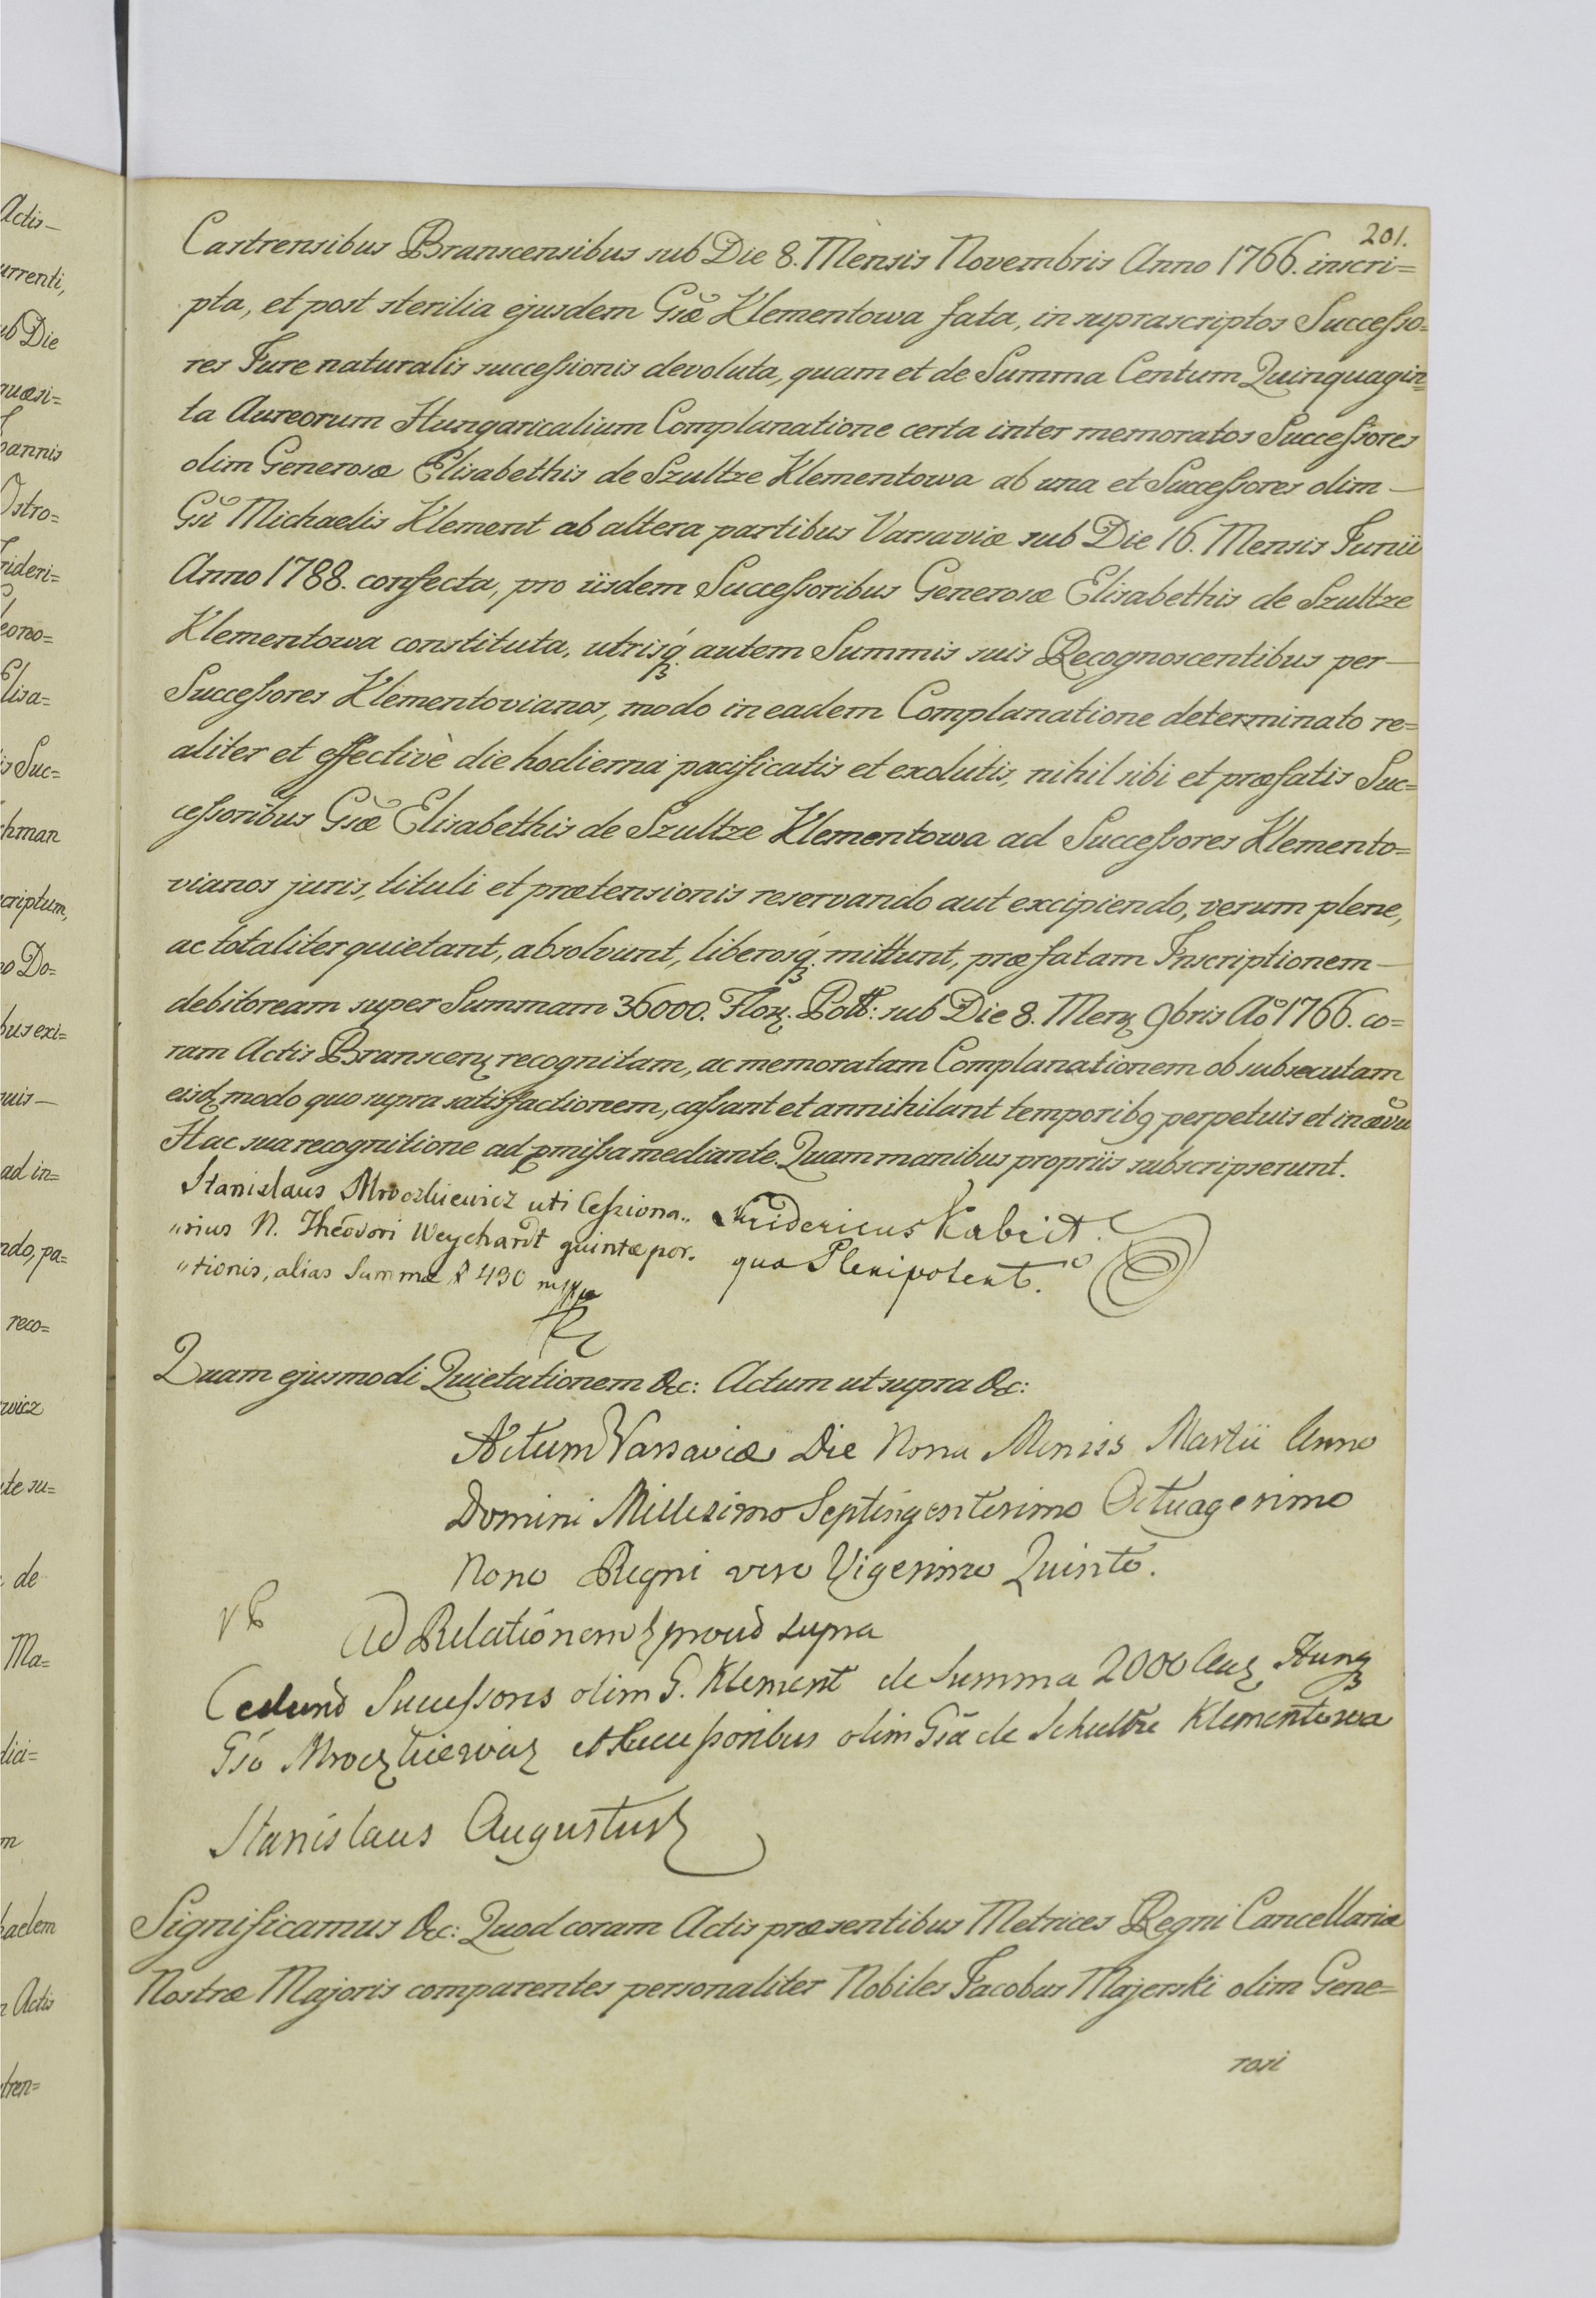 201.
Castrensibus Branscensibus sub Die 8. Mensis Novembris Anno 1766. inscri=
pta, et post sterilia ejusdem Gsæ Klementowa fata, in suprascriptos Successo=
res Jure naturalis successionis devoluta, quam et de Summa Centum Quinquagin=
ta Aureorum Hungaricalium Complanatione certa inter memoratos Successores
olim Generosæ Elisabethis de Szultze Klementowa ab una et Successores olim —
Gsi Michaelis Klement ab altera partibus Varsaviæ sub Die 16. Mensis Junii
Anno 1788. confecta, pro iisdem Successoribus Generosæ Elisabethis de Szultze
Klementowa constituta, utrisq. autem Summis suis Recognoscentibus per —
Successores Klementovianos, modo in eadem Complanatione determinato re=
aliter et effectivè die hodierna pacificatis et exolutis, nihil sibi et præfatis Suc=
cessoribus Gsæ Elisabethis de Szultze Klementowa ad Successores Klemento=
vianos juris, tituli et prætensionis reservando aut excipiendo, verum plene,
ac totaliter quietant, absolvunt, liberosq. mittunt, præfatam Inscriptionem —
debitoream super Summam 36000. Flor. Poll: sub Die 8. Mens 9bris Ao 1766. co=
ram Actis Branscen recognitam, ac memoratam Complanationem ob subsecutam
eisd modo quo supra satisfactionem, cassant et annihilant temporib9 perpetuis et in ævu
Hac sua recognitione ad pmissa mediante. Quam manibus propriis subscripserunt.
Stanislaus Mroczkiewicz uti Cessiona„
„rius N. Theodori Weychardt quintæ por.
„tionis, alias Summæ # 430 mpp
Fridericus Kabrit.
qua Plenipotent.
Quam ejusmodi Quietationem &c: Actum ut supra &c:
Actum Varsaviæ Die Nona Mensis Martii Anno
Domini Millesimo Septingentesimo Octuagesimo
Nono Regni vero Vigesimo Quinto.
Ad Relationem proud supra
Cedund Successores olim G. Klement de Summa 2000 Aur Hung
Gso Mroczkiewicz et Successoribus olim Gsa de Schultze Klementowa
Stanislaus Augustus
Significamus &c: Quod coram Actis præsentibus Metrices Regni Cancellariæ
Nostræ Majoris comparentes personaliter Nobiles Jacobus Majerski olim Gene=
rosi